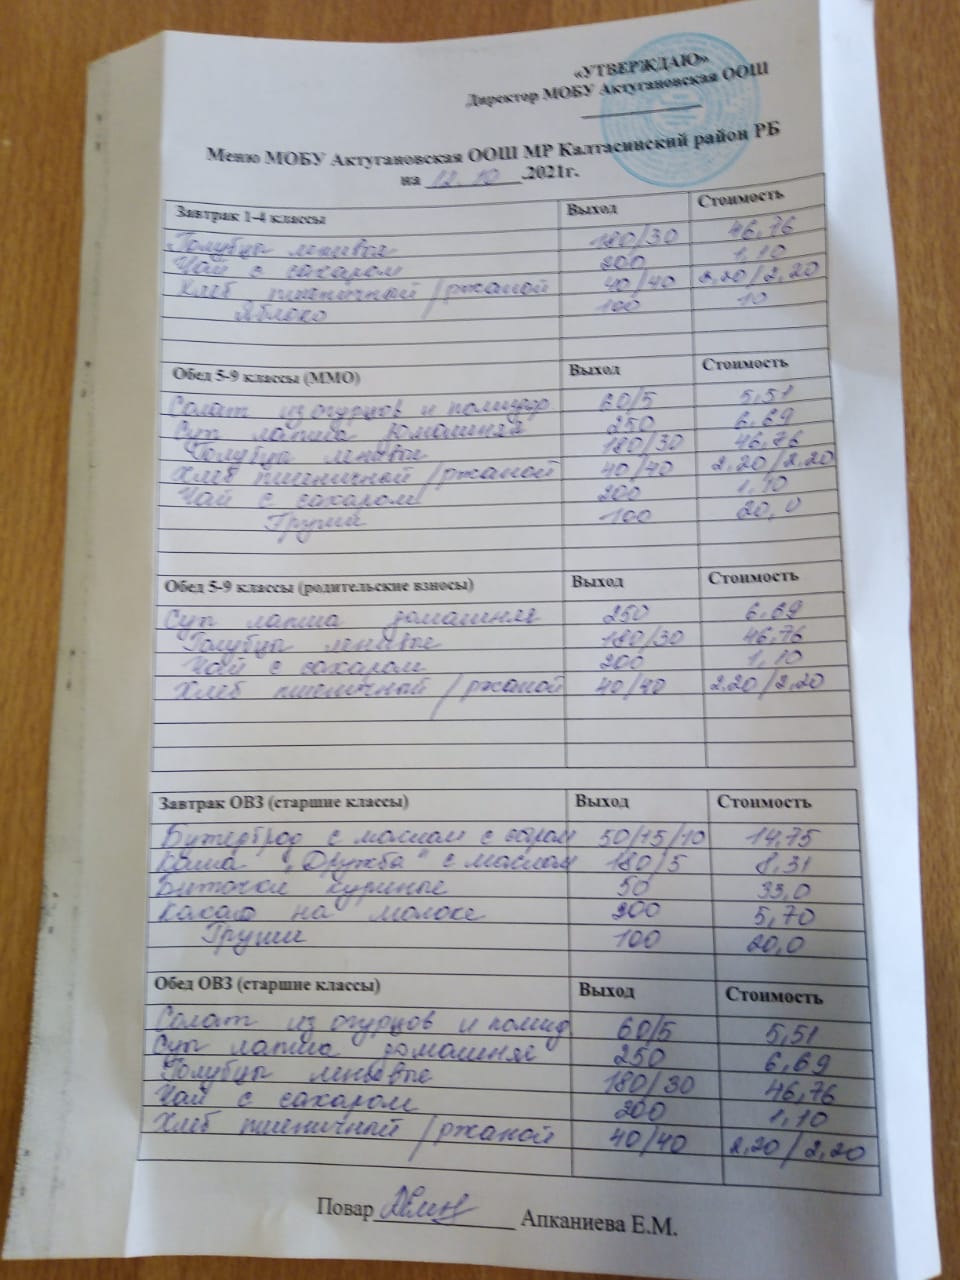 «УТВЕРЖДАЮ»
Директор МОБУ Актугановская ООШ
Меню МОБУ Актугановская ООШ МР Калтасинский район РБ
на 12.10 .2021г.
Завтрак 1-4 классы Выход Стоимость
Голубцы ленивые 180/30 46,76
Чай с сахаром 200 1,10
Хлеб пшеничный/ржаной 40/40 2,20/2,20
Яблоко 100 10
Обед 5-9 классы (ММО) Выход Стоимость
Салат из огурцов и помидор 60/5 5,51
Суп лапша домашняя 250 6,69
Голубцы ленивые 180/30 46,76
Хлеб пшеничный/ржаной 40/40 2,20/2,20
Чай с сахаром 200 1,10
Груши 100 20,0
Обед 5-9 классы (родительские взносы) Выход Стоимость
Суп лапша домашняя 250 6,69
Голубцы ленивые 180/30 46,76
Чай с сахаром 200 1,10
Хлеб пшеничный/ржаной 40/40 2,20/2,20
Завтрак ОВЗ (старшие классы) Выход Стоимость
Бутерброд с маслом с сыром 50/15/10 14,75
Каша "Дружба" с маслом 180/5 8,31
Биточки куриные 50 33,0
Какао на молоке 200 5,70
Груши 100 20,0
Обед ОВЗ (старшие классы) Выход Стоимость
Салат из огурцов и помид 60/5 5,51
Суп лапша домашняя 250 6,69
Голубцы ленивые 180/30 46,76
Чай с сахаром 200 1,10
Хлеб пшеничный/ржаной 40/40 2,20/2,20
Повар Апканиева Е.М.